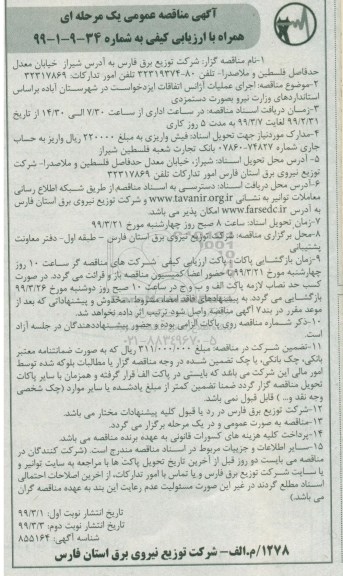 آگهی مناقصه عمومی یک مرحله ای
همراه با ارزیابی کیفی به شماره ۳۴-۹-۱-۹۹
۱-نام مناقصه گزار: شرکت توزیع برق فارس به آدرس شیراز خیابان معدل
حدفاصل فلسطین و ملاصدرا- تلفن ۸۰-۳۲۳۱۹۳۷۴ تلفن امور تدارکات: ۳۲۳۱۷۸۶۹
۲-موضوع مناقصه: اجرای عملیات آژانس اتفاقات ایزدخواست در شهرستان آباده براساس
استانداردهای وزارت نیرو بصورت دستمزدی
۳-زمان دریافت اسناد مناقصه: در ساعت اداری از ساعت ۷/۳۰ الی ۱۴/۳۰ از تاریخ
۹۹/۲/۳۱ لغایت ۹۹/۳/۷ به مدت ۵ روز کاری
۴-مدارک موردنیاز جهت تحویل اسناد: فیش واریزی به مبلغ ۲۲۰۰۰۰ ریال واریز به حساب
جاری شماره ۷۴۸۲۷-۰۷۸۶۰ بانک تجارت شعبه فلسطین شیراز
۵- آدرس محل تحویل اسناد: شیراز، خیابان معدل حدفاصل فلسطین و ملاصدرا- شرکت
توزیع نیروی برق استان فارس امور تدارکات تلفن ۳۲۳۱۷۸۶۹
۶-آدرس محل دریافت اسناد: دسترسی به اسناد مناقصه از طریق شبکه اطلاع رسانی
معاملات توانیر به نشانی www.tavanir.org.ir و شرکت توزیع نیروی برق استان فارس
به آدرس www.farsedc.ir امکان پذیر می باشد.
۷-زمان تحویل اسناد: ساعت ۸ صبح روز چهارشنبه مورخ ۹۹/۳/۲۱
۸-محل برگزاری مناقصه: شرکت توزیع نیروی برق استان فارس – طبقه اول- دفتر معاونت
پشتیبانی
۹-زمان بازگشایی پاکات: پاکت ارزیابی کیفی شرکت های مناقصه گر ساعت ۱۰ روز
چهارشنبه مورخ ۹۹/۳/۲۱ با حضور اعضا کمیسیون مناقصه باز و قرائت می گردد. در صورت
کسب حد نصاب لازمه پاکت الف و ب و ج در ساعت ۱۰ صبح روز دوشنبه مورخ ۹۹/۳/۲۶
بازگشایی می گردد. به پیشنهادهای فاقد امضاء، مشروط، مخدوش و پیشنهاداتی که بعد از
موعد مقرر در بند۷ آگهی مناقصه واصل شود ترتیب اثر داده نخواهد شد.
۱۰-ذکر شماره مناقصه روی پاکات الزامی بوده و حضور پیشنهاددهندگان در جلسه آزاد
است
۱۱-تضمین شرکت در مناقصه: مبلغ ریال که به صورت ضمانتنامه معتبر
بانکی، چک بانکی، یا چک تضمین شده در وجه مناقصه گزار یا مطالبات بلوکه شده توسط
امور مالی این شرکت می باشد که بایستی در پاکت الف قرار گرفته و همزمان با سایر پاکات
تحویل مناقصه گزار گردد ضمنا تضمین کمتر از مبلغ یادشده یا سایر موارد (چک شخصی
وجه نقد و... ) قابل قبول نمی باشد.
۱۲-شرکت توزیع برق فارس در رد یا قبول کلیه پیشنهادات مختار می باشد.
۱۳-مناقصه به صورت عمومی و در یک مرحله برگزار می گردد.
۱۴-پرداخت کلیه هزینه های کسورات قانونی به عهده برنده مناقصه می باشد.
۱۵-سایر اطلاعات و جزییات مربوط در اسناد مناقصه مندرج است. (شرکت کنندگان در
مناقصه می بایست دو روز قبل از آخرین تاریخ تحویل پاکت ها با مراجعه به سایت توانیر و
یا سایت شرکت توزیع برق فارس و یا تماس با امور تدارکات، از آخرین اصلاحات احتمالی
اسناد مطلع گردند در غیر این صورت مسئولیت عدم رعایت این بند به عهده مناقصه گران
می باشد.)
تاریخ انتشار نوبت اول: ۹۹/۳/۱
تاریخ انتشار نوبت دوم: ۹۹/۳/۳
شناسه آگهی: ۸۵۵۱۶۴
۱۲۷۸/م.الف- شرکت توزیع نیروی برق استان فارس